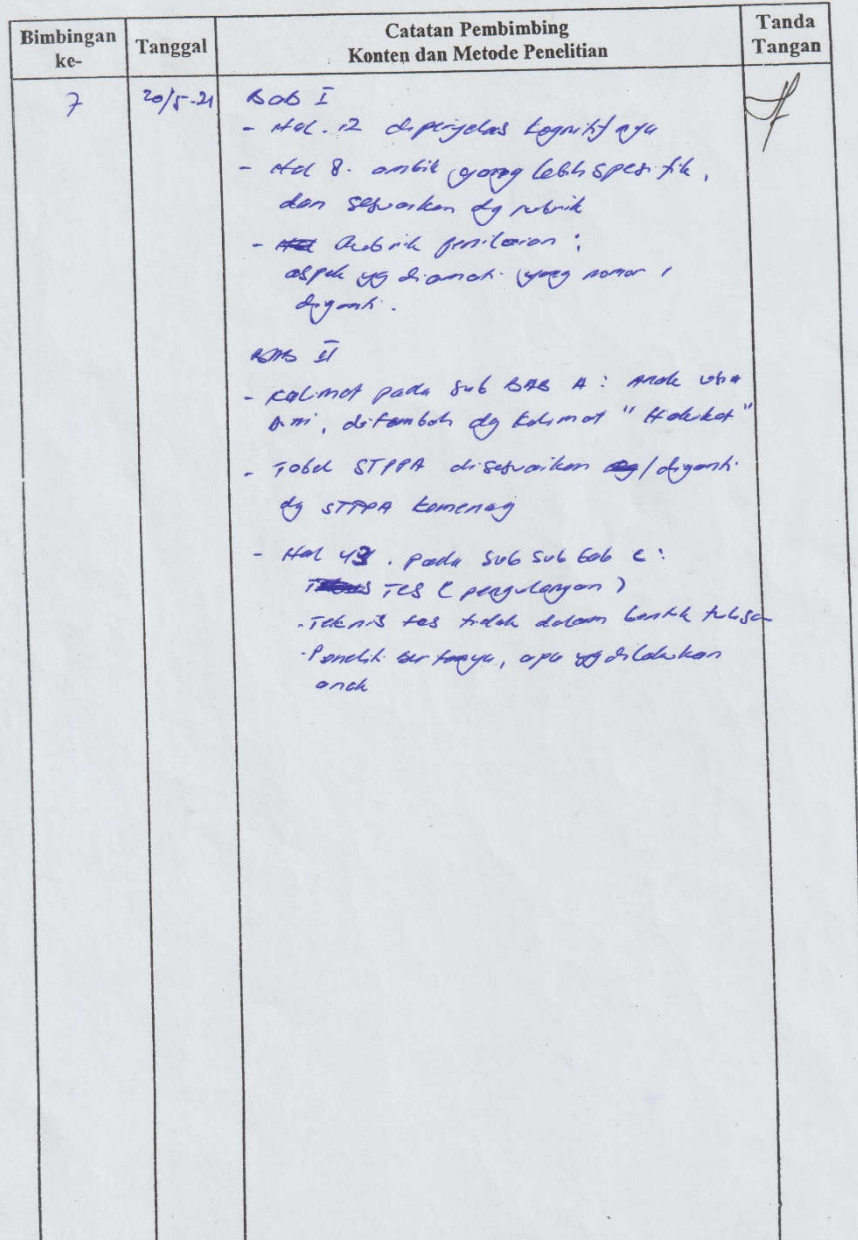 Bimbingan ke-
Tanggal
Catatan Pembimbing
Konten dan Metode Penelitian
Tanda Tangan
7
20/5-21
BAB I
- Hal. 12 diperjelas kognitifnya
- Hal 8. ambil yang lebih spesifik,
dan sesuaikan dg rubrik
- Rubrik penilaian :
aspek yg diamati yang nomor 1
diganti.
BAB II
- Kalimat pada Sub BAB A : Anak usia
dini, ditambah dg kalimat "Hakikat"
- Tabel STPPA disesuaikan /diganti
dg STPPA kemenag
- Hal 43. pada Sub Sub bab C :
TES (pengulangan)
- Teknis tes tidak dalam bentuk tulisan
- Peneliti bertanya, apa yg dilakukan
anak